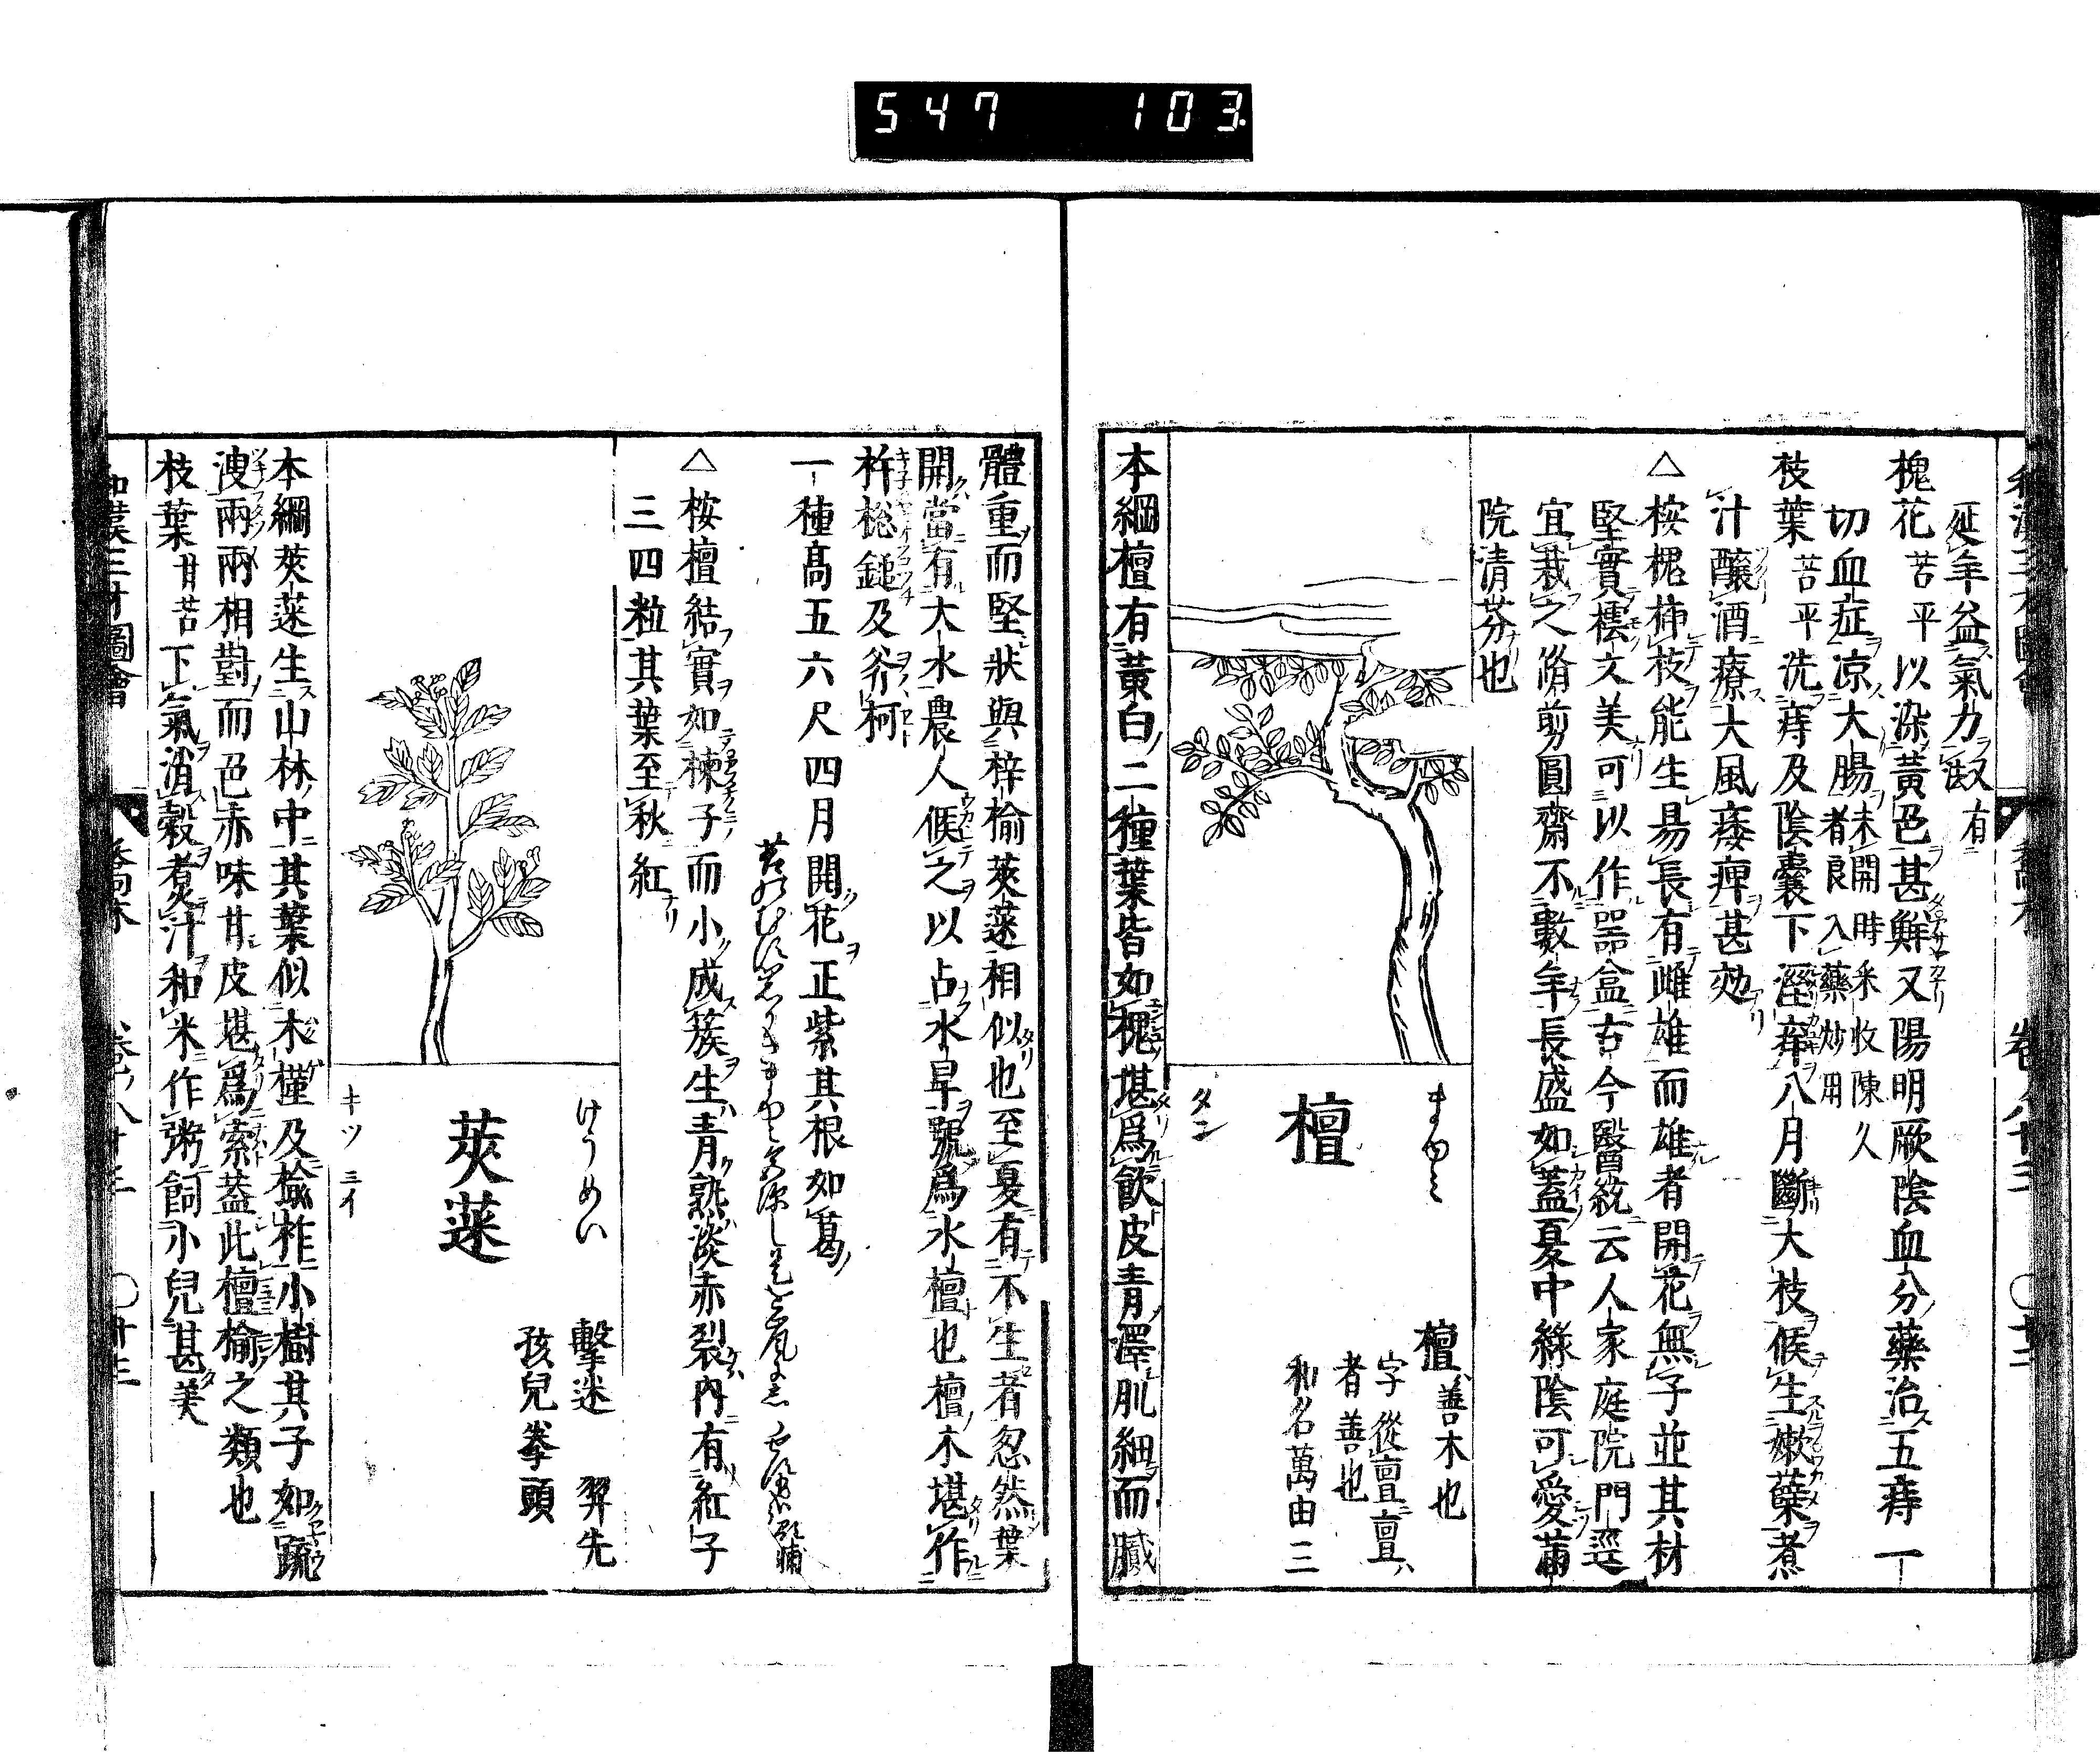 547 103
延年益氣力故有
槐花 苦平 以染黃色甚鮮又陽明厥陰血分藥治五痔一
切血症凉大腸 未開時采收陳久
者良入藥炒用
枝葉 苦平 洗痔及陰囊下溼痒八月斷大枝候生嫩蘖煮
汁釀酒療大風痿痺甚効
△桉槐柿枝能生易長有雌雄而雄者開花無子並其材
堅實橒文美可以作噐盒古今醫統云人家庭院門逕
宜栽之脩剪圓齋不數年長盛如蓋夏中綠陰可愛莆
院清芬也
まゆみ
檀
タン
檀善木也
字從亶亶
者善也
和名萬由三
本綱檀有黃白二種葉皆如槐堪爲飮皮青澤肌細而膩
體重而堅狀與梓榆莢蒾相似也至夏有不生者忽然葉
開當有大水農人候之以占水旱號爲水檀也檀木堪作
杵㮤鎚及斧柯
一種高五六尺四月開花正紫其根如葛
△桉檀結實如楝子而小成簇生青熟淡赤裂内有紅子
三四粒其葉至秋紅
けうめい
莢蒾
キツ ミイ
擊迷 羿先
孩兒拳頭
本綱莢蒾生山林中其葉似木槿及榆柞小樹其子如䟽
溲兩兩相對而色赤味甘皮堪爲索葢此檀榆之類也
枝葉 甘苦 下氣消穀煮汁和米作粥飼小兒甚美